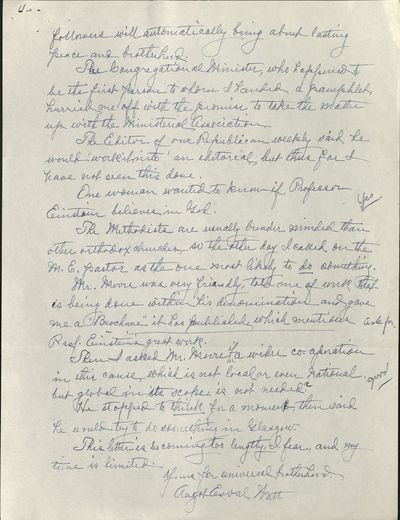 followers will automatically bring about lasting
peace and brotherhood.
The Congregational Minister, who happened to
be the first person to whom I handed a pamphlet,
hurried me off with the promise to take the matter
up with the Ministerial Association.
The Editor of our Republican weekly said he
would work it into an editorial, but thus far I
have not seen this done.
One woman wanted to know if Professor
Einstein believes in God. Yes
The Methodists are usually broader minded than
other orthodox churches, so the other day I called on the
M. E. pastor as the one most likely to do something.
Mr. Moore was very friendly, told me of work that
is being done within his denomination and gave
me a "Brochure" it has published, which mentions ask for
Prof. Einstein's great work.
Then I asked Mr. Moore if a wider co-operation
in this cause, which is not local or even National,
but global in its scope, is not needed? good
He stopped to think for a moment, then said
he would try to do something in Glasgow.
This letter is becoming too lengthy, I fear, and my
time is limited.
Yours for universal brotherhood,